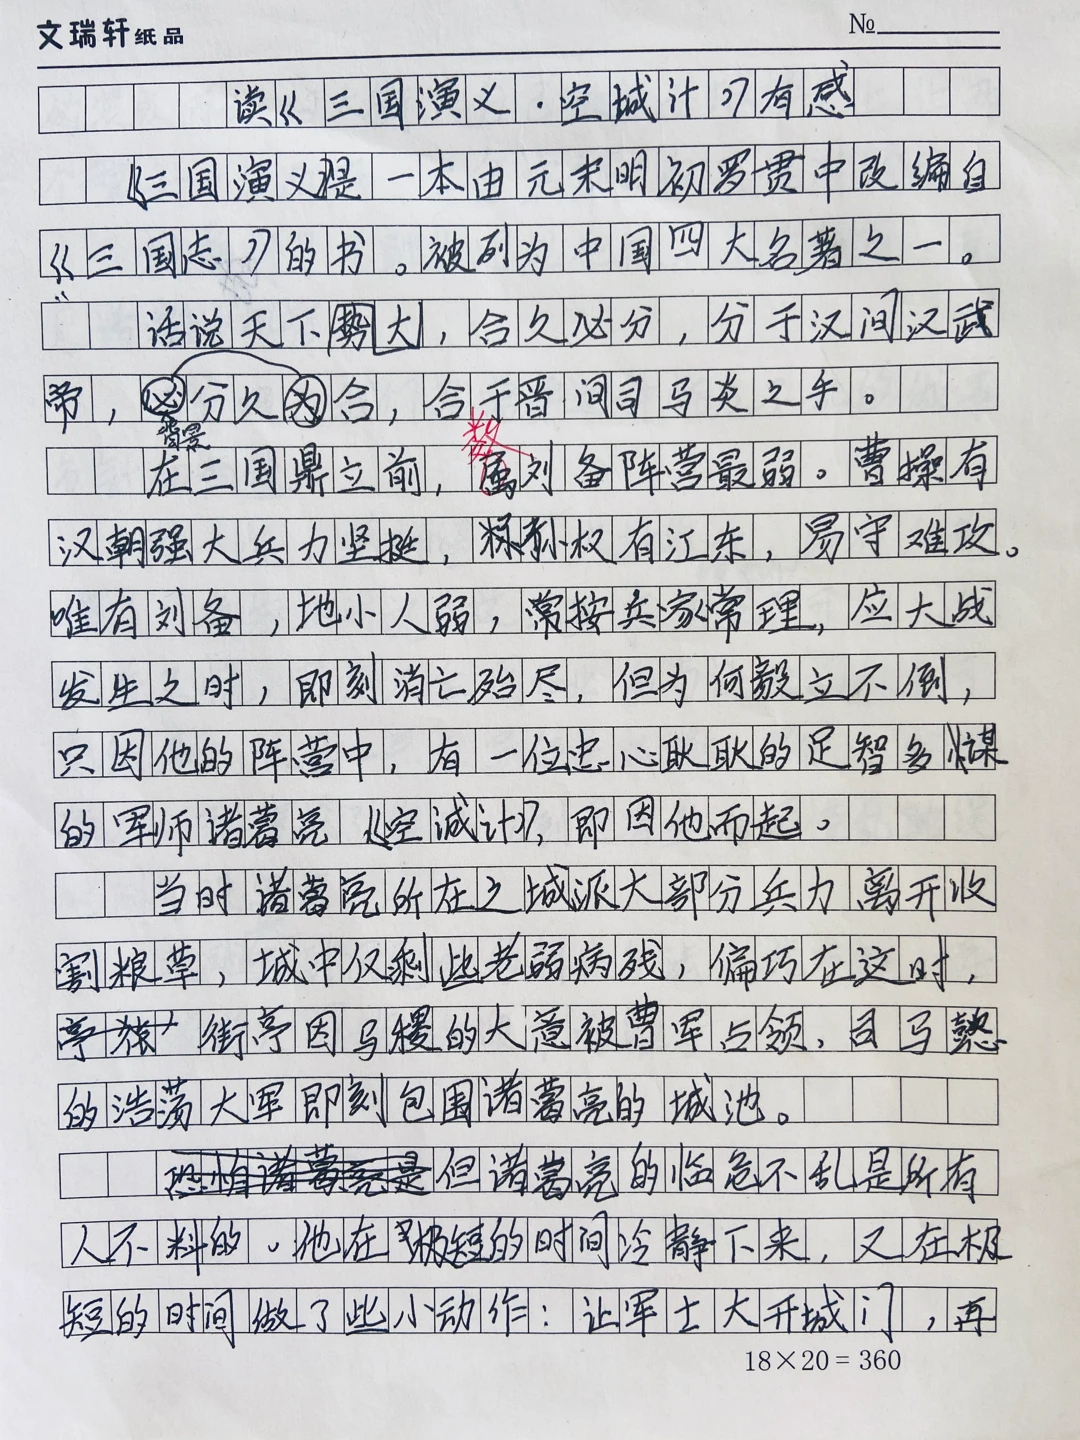 文瑞轩纸品
№
读《三国演义·空城计》有感
《三国演义是一本由元末明初罗贯中改编自
《三国志》的书。被列为中国四大名著之一。
话说天下势大，合久必分，分于汉间汉武
帝，必分久为合，合于晋间司马炎之手。
背景
数
在三国鼎立前，属刘备阵营最弱。曹操有
汉朝强大兵力坚挺，孙权有江东，易守难攻。
唯有刘备，地小人弱，常按兵家常理，应大战
发生之时，即刻消亡殆尽，但为何毅立不倒，
只因他的阵营中，有一位忠心耿耿的足智多谋
的军师诸葛亮《空诚计》，即因他而起。
当时诸葛亮所在之城派大部分兵力离开收
割粮草，城中仅剩些老弱病残，偏巧在这时，
街亭因马稷的大意被曹军占领，司马懿
的浩荡大军即刻包围诸葛亮的城池。
恐怕诸葛亮是但诸葛亮的临危不乱是所有
人不料的。他在极短的时间冷静下来，又在极
短的时间做了些小动作：让军士大开城门，再
18×20＝360